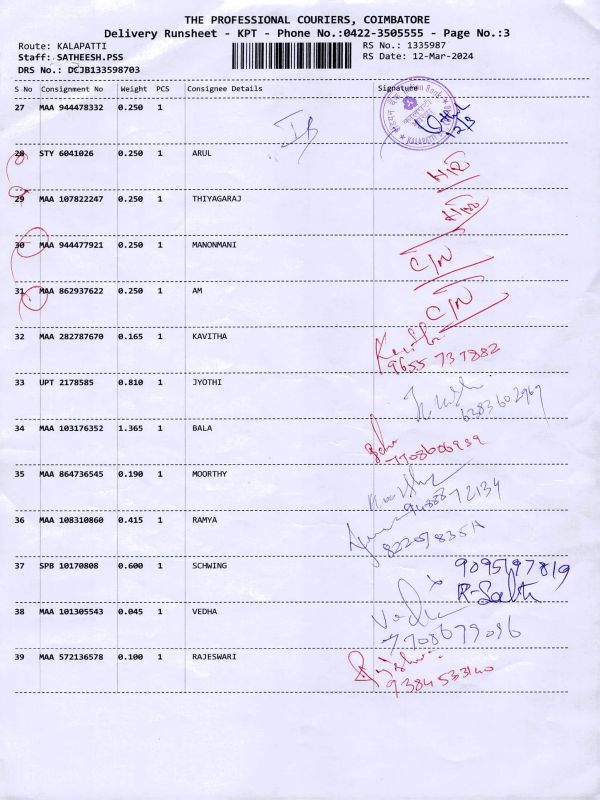 THE PROFESSIONAL COURIERS, COIMBATORE
Delivery Runsheet - KPT - Phone No.:0422-3505555 - Page No.:3
Route: KALAPATTI RS No.: 1335987
Staff: SATHEESH.PSS RS Date: 12-Mar-2024
DRS No.: DCJB133598703
S No Consignment No Weight PCS Consignee Details Signature
27 MAA 944478332 0.250 1
KALAPATTI
28 STY 6041026 0.250 1 ARUL
29 MAA 107822247 0.250 1 THIYAGARAJ
30 MAA 944477921 0.250 1 MANONMANI C/N
31 MAA 862937622 0.250 1 AM C/N
32 MAA 282787670 0.165 1 KAVITHA
9655 737882
33 UPT 2178585 0.810 1 JYOTHI
6383602967
34 MAA 103176352 1.365 1 BALA
7708606939
35 MAA 864736545 0.190 1 MOORTHY
9488872134
36 MAA 108310860 0.415 1 RAMYA
37 SPB 10170808 0.600 1 SCHWING
38 MAA 101305543 0.045 1 VEDHA Vedha
7708679096
39 MAA 572136578 0.100 1 RAJESWARI
9384533140